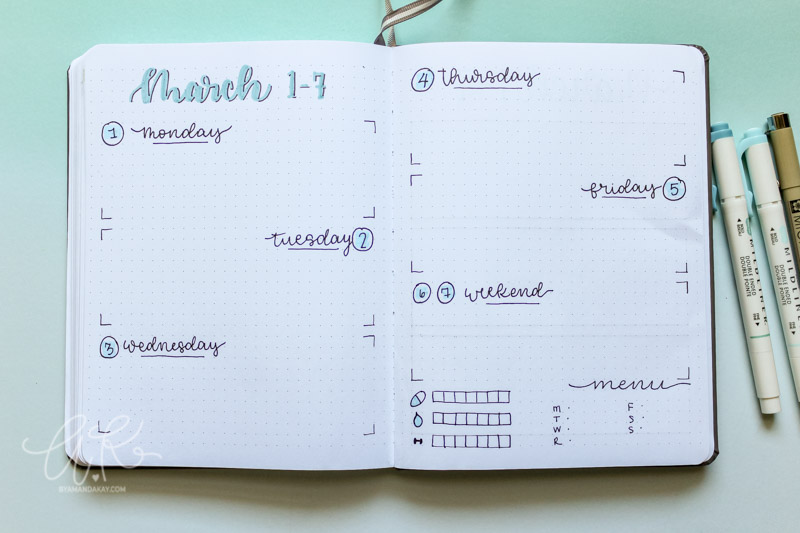 March 1-7
1 monday
tuesday 2
3 wednesday
4 thursday
friday 5
6 7 weekend
menu
M · F ·
T · S ·
W · S ·
R ·
MILDLINER
DOUBLE ENDED
DOUBLE POINTE
MILDLINER
DOUBLE ENDED
DOUBLE POINTE
BYAMANDAKAY.COM